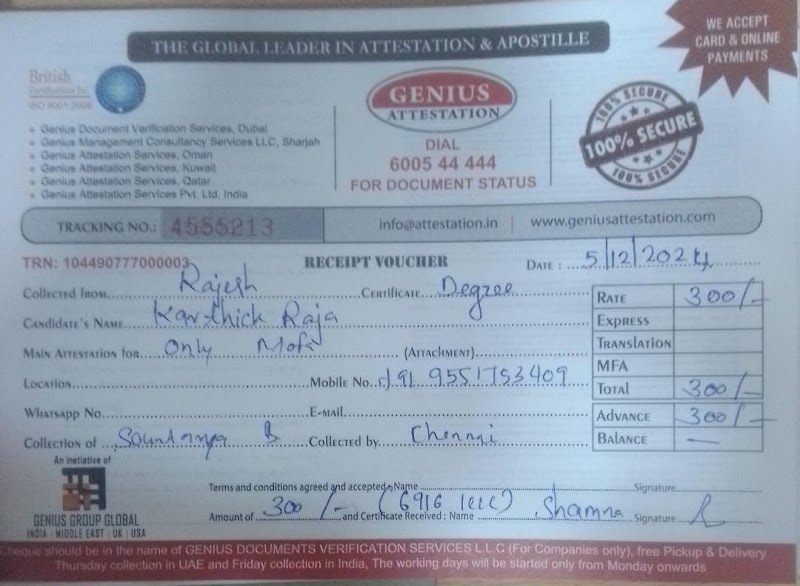 WE ACCEPT
CARD & ONLINE
PAYMENTS
THE GLOBAL LEADER IN ATTESTATION & APOSTILLE
British
ISO 9001:2008
GENIUS
ATTESTATION
DIAL
6005 44 444
FOR DOCUMENT STATUS
100% SECURE
100% SECURE
100% SECURE
Genius Document Verification Services, Dubai
Genius Management Consultancy Services LLC, Sharjah
Genius Attestation Services, Oman
Genius Attestation Services, Kuwait
Genius Attestation Services, Qatar
Genius Attestation Services Pvt. Ltd, India
TRACKING NO.: 4555213 info@attestation.in | www.geniusattestation.com
TRN: 104490777000003 RECEIPT VOUCHER DATE: 5/12/2024
COLLECTED FROM Rajesh CERTIFICATE Degree
CANDIDATE'S NAME Karthick Raja
MAIN ATTESTATION FOR Only Mofa (ATTACHMENT)
LOCATION MOBILE NO. +91 9551753409
WHATSAPP NO. E-MAIL
COLLECTION OF Soundarya B COLLECTED BY Chennai
RATE 300/-
EXPRESS
TRANSLATION
MFA
TOTAL 300/-
ADVANCE 300/-
BALANCE —
An inetiative of
GENIUS GROUP GLOBAL
INDIA | MIDDLE EAST | UK | USA
Terms and conditions agreed and accepted, Name Signature
Amount of 300/- (6916 and Certificate Received : Name Shamna Signature
Cheque should be in the name of GENIUS DOCUMENTS VERIFICATION SERVICES L.L.C (For Companies only), free Pickup & Delivery
Thursday collection in UAE and Friday collection in India, The working days will be started only from Monday onwards